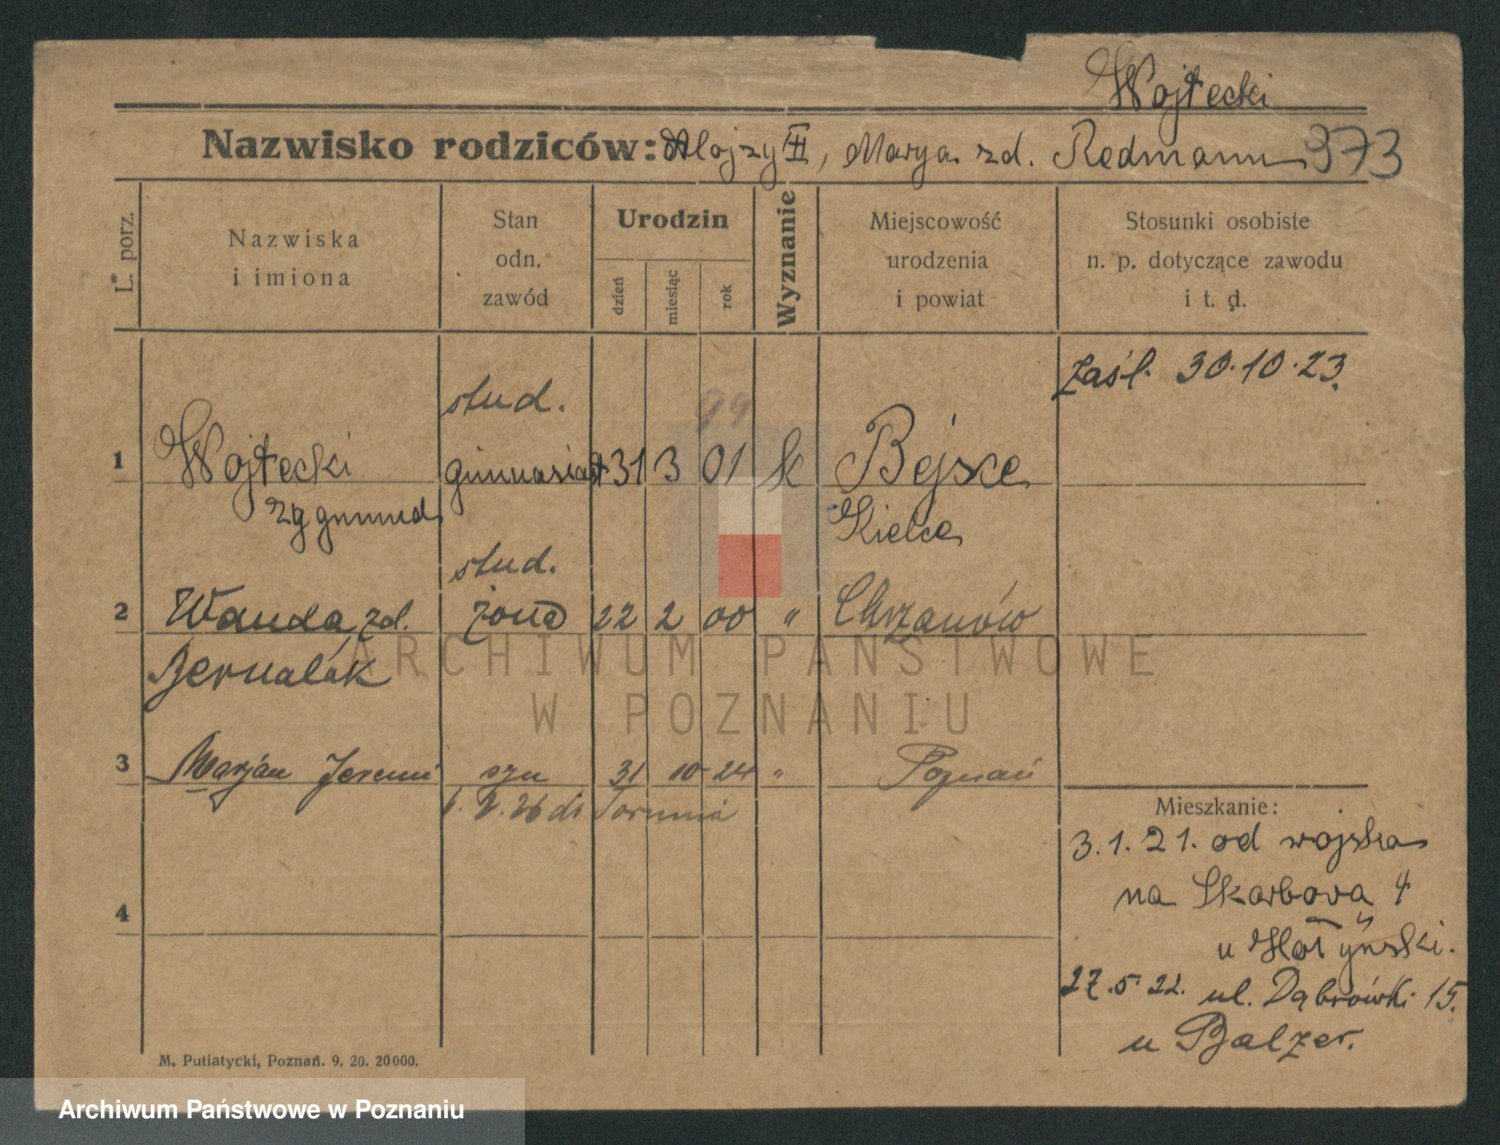 Wojtecki
Nazwisko rodziców: Alojzy, Marya zd. Redmann 973
L. porz.
Nazwiska
i imiona
Stan
odn.
zawód
Urodzin
dzień
miesiąc
rok
Wyznanie
Miejscowość
urodzenia
i powiat
Stosunki osobiste
n. p. dotyczące zawodu
i t. d.
zaśl. 30.10.23.
stud. 99
1 Wojtecki gimnasiast 31 3 01 k Bejsce
Zygmund Kielce
stud.
2 Wanda zd. żona 22 2 00 " Chrzanów
Bernalák
ARCHIWUM PAŃSTWOWE
W POZNANIU
3 Marjan Jeremi syn 31 10 24 " Poznań
26 do Torunia
Mieszkanie:
3.1.21. od wojska
na Skarbova 4
4
u Hołyński.
27.5.22. ul. Dąbrówki 15.
u Balzer.
M. Putiatycki, Poznań. 9. 20. 20000.
Archiwum Państwowe w Poznaniu